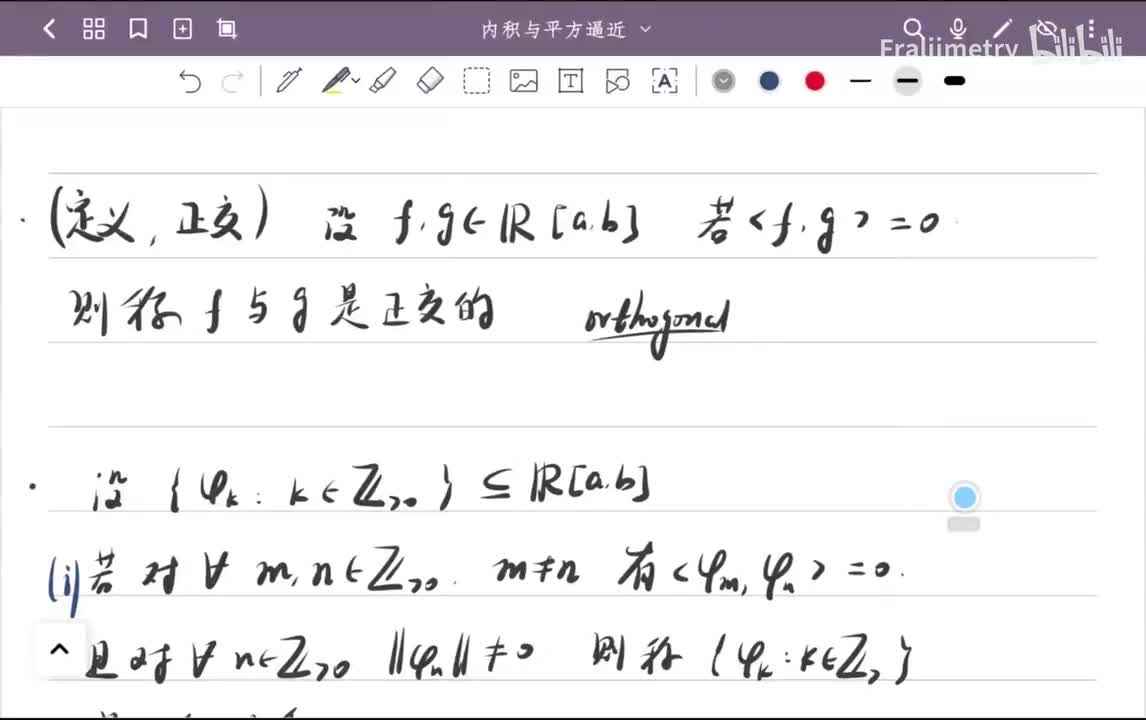 内积与平方逼近
Fraljimetry bilibili
(定义, 正交) 设 f, g ∈ ℝ[a,b] 若 <f, g> = 0
则称 f 与 g 是正交的 orthogonal
设 {φₖ : k ∈ ℤ>0} ⊆ ℝ[a,b]
(i) 若对 ∀ m, n ∈ ℤ>0. m≠n 有 <φₘ, φₙ> = 0.
且对 ∀ n ∈ ℤ>0 ‖φₙ‖ ≠ 0 则称 {φₖ : k ∈ ℤ>}